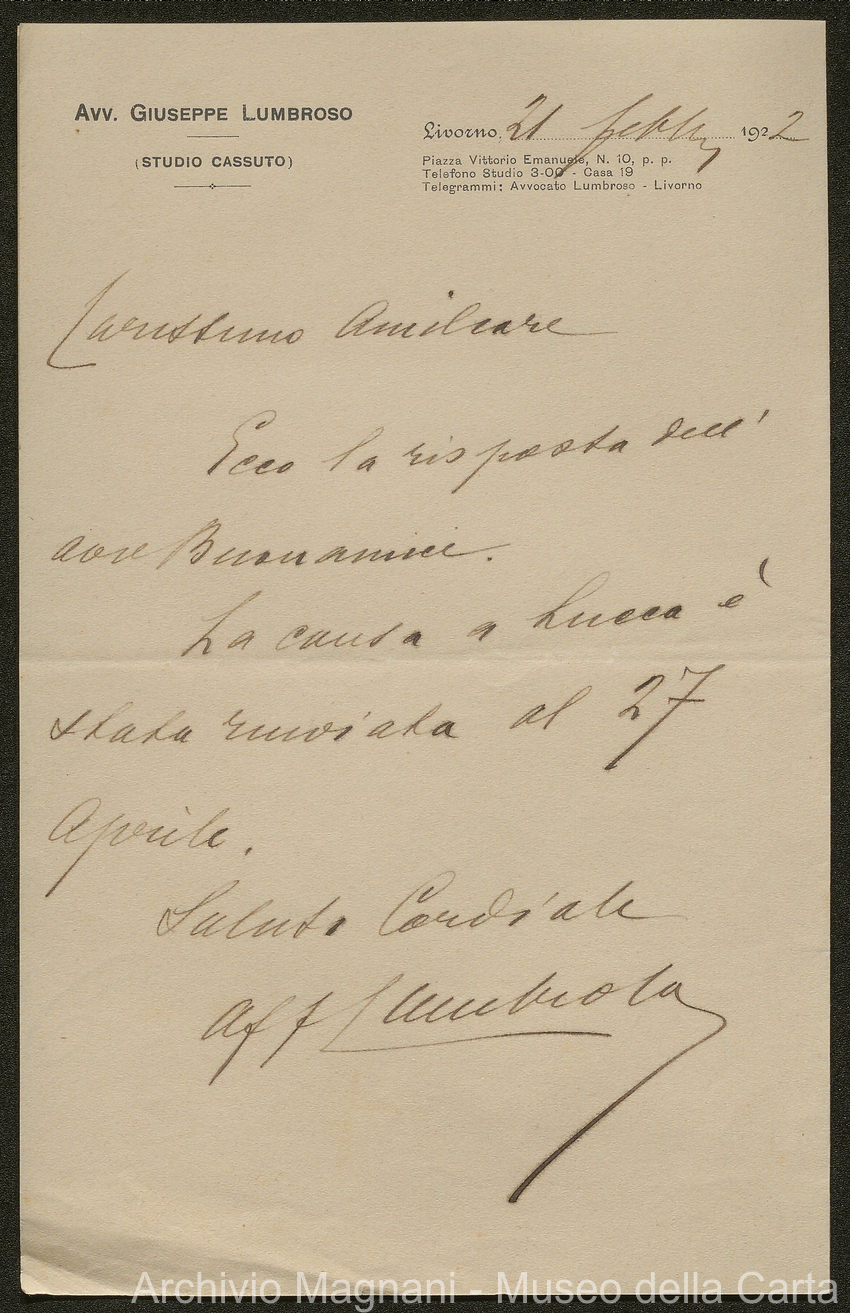 AVV. GIUSEPPE LUMBROSO
(STUDIO CASSUTO)
Livorno, 21 febb 1922
Piazza Vittorio Emanuele, N. 10, p. p.
Telefono Studio 3-00 - Casa 19
Telegrammi: Avvocato Lumbroso - Livorno
Carissimo Amilcare
Ecco la risposta dell'
avv Buonamici.
La causa a Lucca è
stata rinviata al 27
Aprile.
Saluti Cordiali
Aff Lumbroso
Archivio Magnani - Museo della Carta